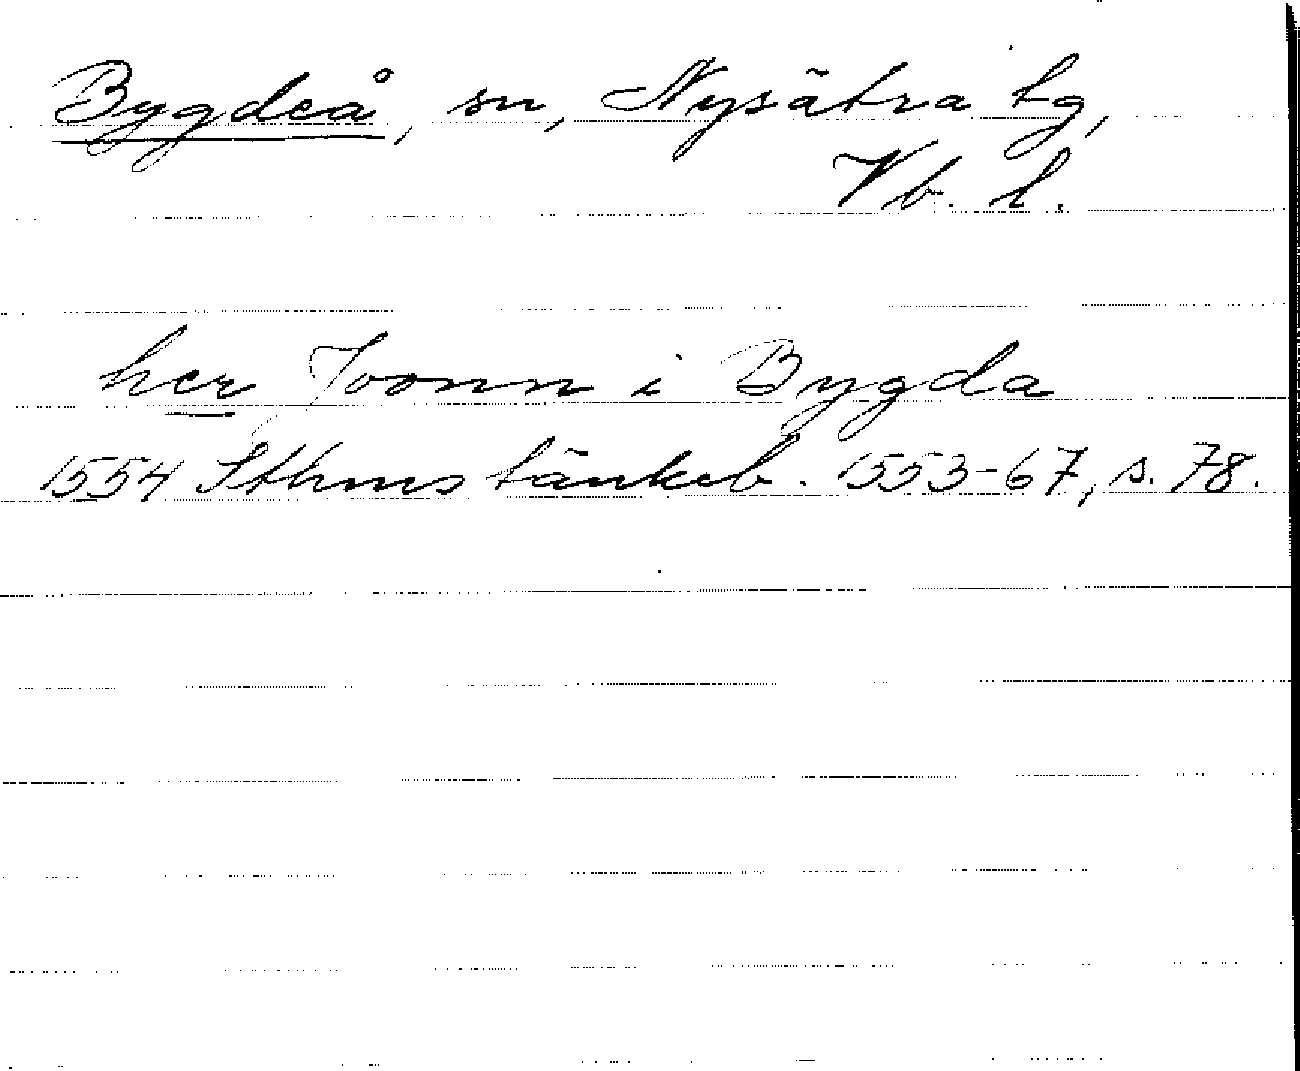 Bygdeå, sn, Nysätra tg,
Vb. l.
her Joonn i Bygda
1554 Sthms tänkeb. 1553-67, s. 78.